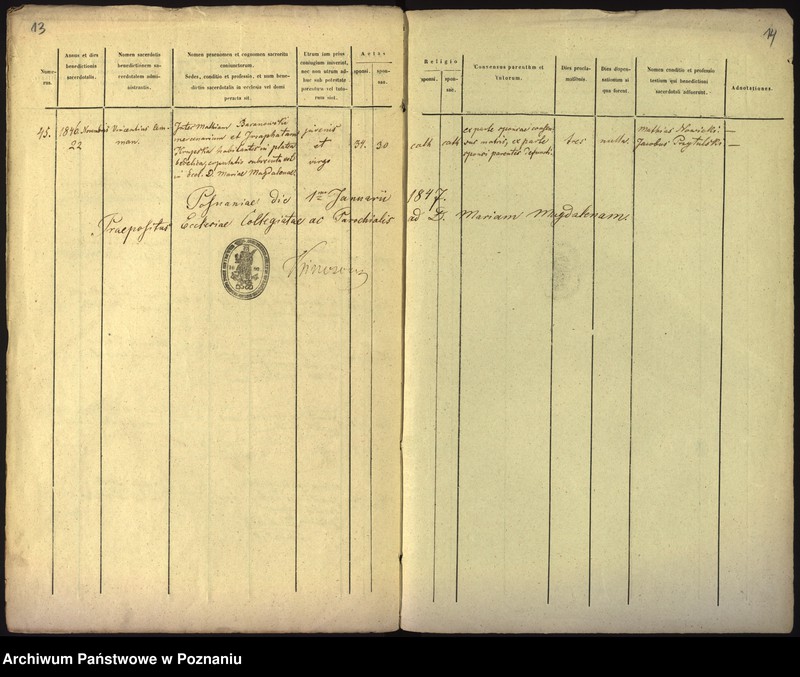 13
14
Nume-
rus.
Annus et dies
benedictionis
sacerdotalis.
Nomen sacerdotis
benedictionem sa-
cerdotalem admi-
nistrantis.
Nomen praenomen et cognomen sacratis
conjunctorum.
Sedes, conditio et professio, et num bene-
dictio sacerdotalis in ecclesia vel domi
peracta sit.
Utrum jam prius
conjugium inierint,
nec non utrum ad-
huc sub potestate
parentum vel tuto-
rum sint.
Aetas
sponsi.
spon-
sae.
Religio
sponsi.
spon-
sae.
Consensus parentum et
tutorum.
Dies procla-
mationis.
Dies dispen-
sationum si
qua forent.
Nomen conditio et professio
testium qui benedictioni
sacerdotali adfuerunt.
Adnotationes.
45.
1846. Novembris
22
Vincentius
man.
Inter Mathiam Baranowski
mercenarium et Josephatam
habitantes in platea
in Eccl. D. Mariae Magdalenae.
juvenis
et
virgo
34.
30
cath
cath
ex parte sponsae consen-
sus matris, ex parte
sponsi parentes defuncti.
tres
nulla.
Mathias Nowicki —
Jacobus Przytulski —
Posnaniae die 1ma Januarii 1847.
Praepositus Ecclesiae Collegiatae ac Parochialis ad D. Mariam Magdalenam.
Archiwum Państwowe w Poznaniu